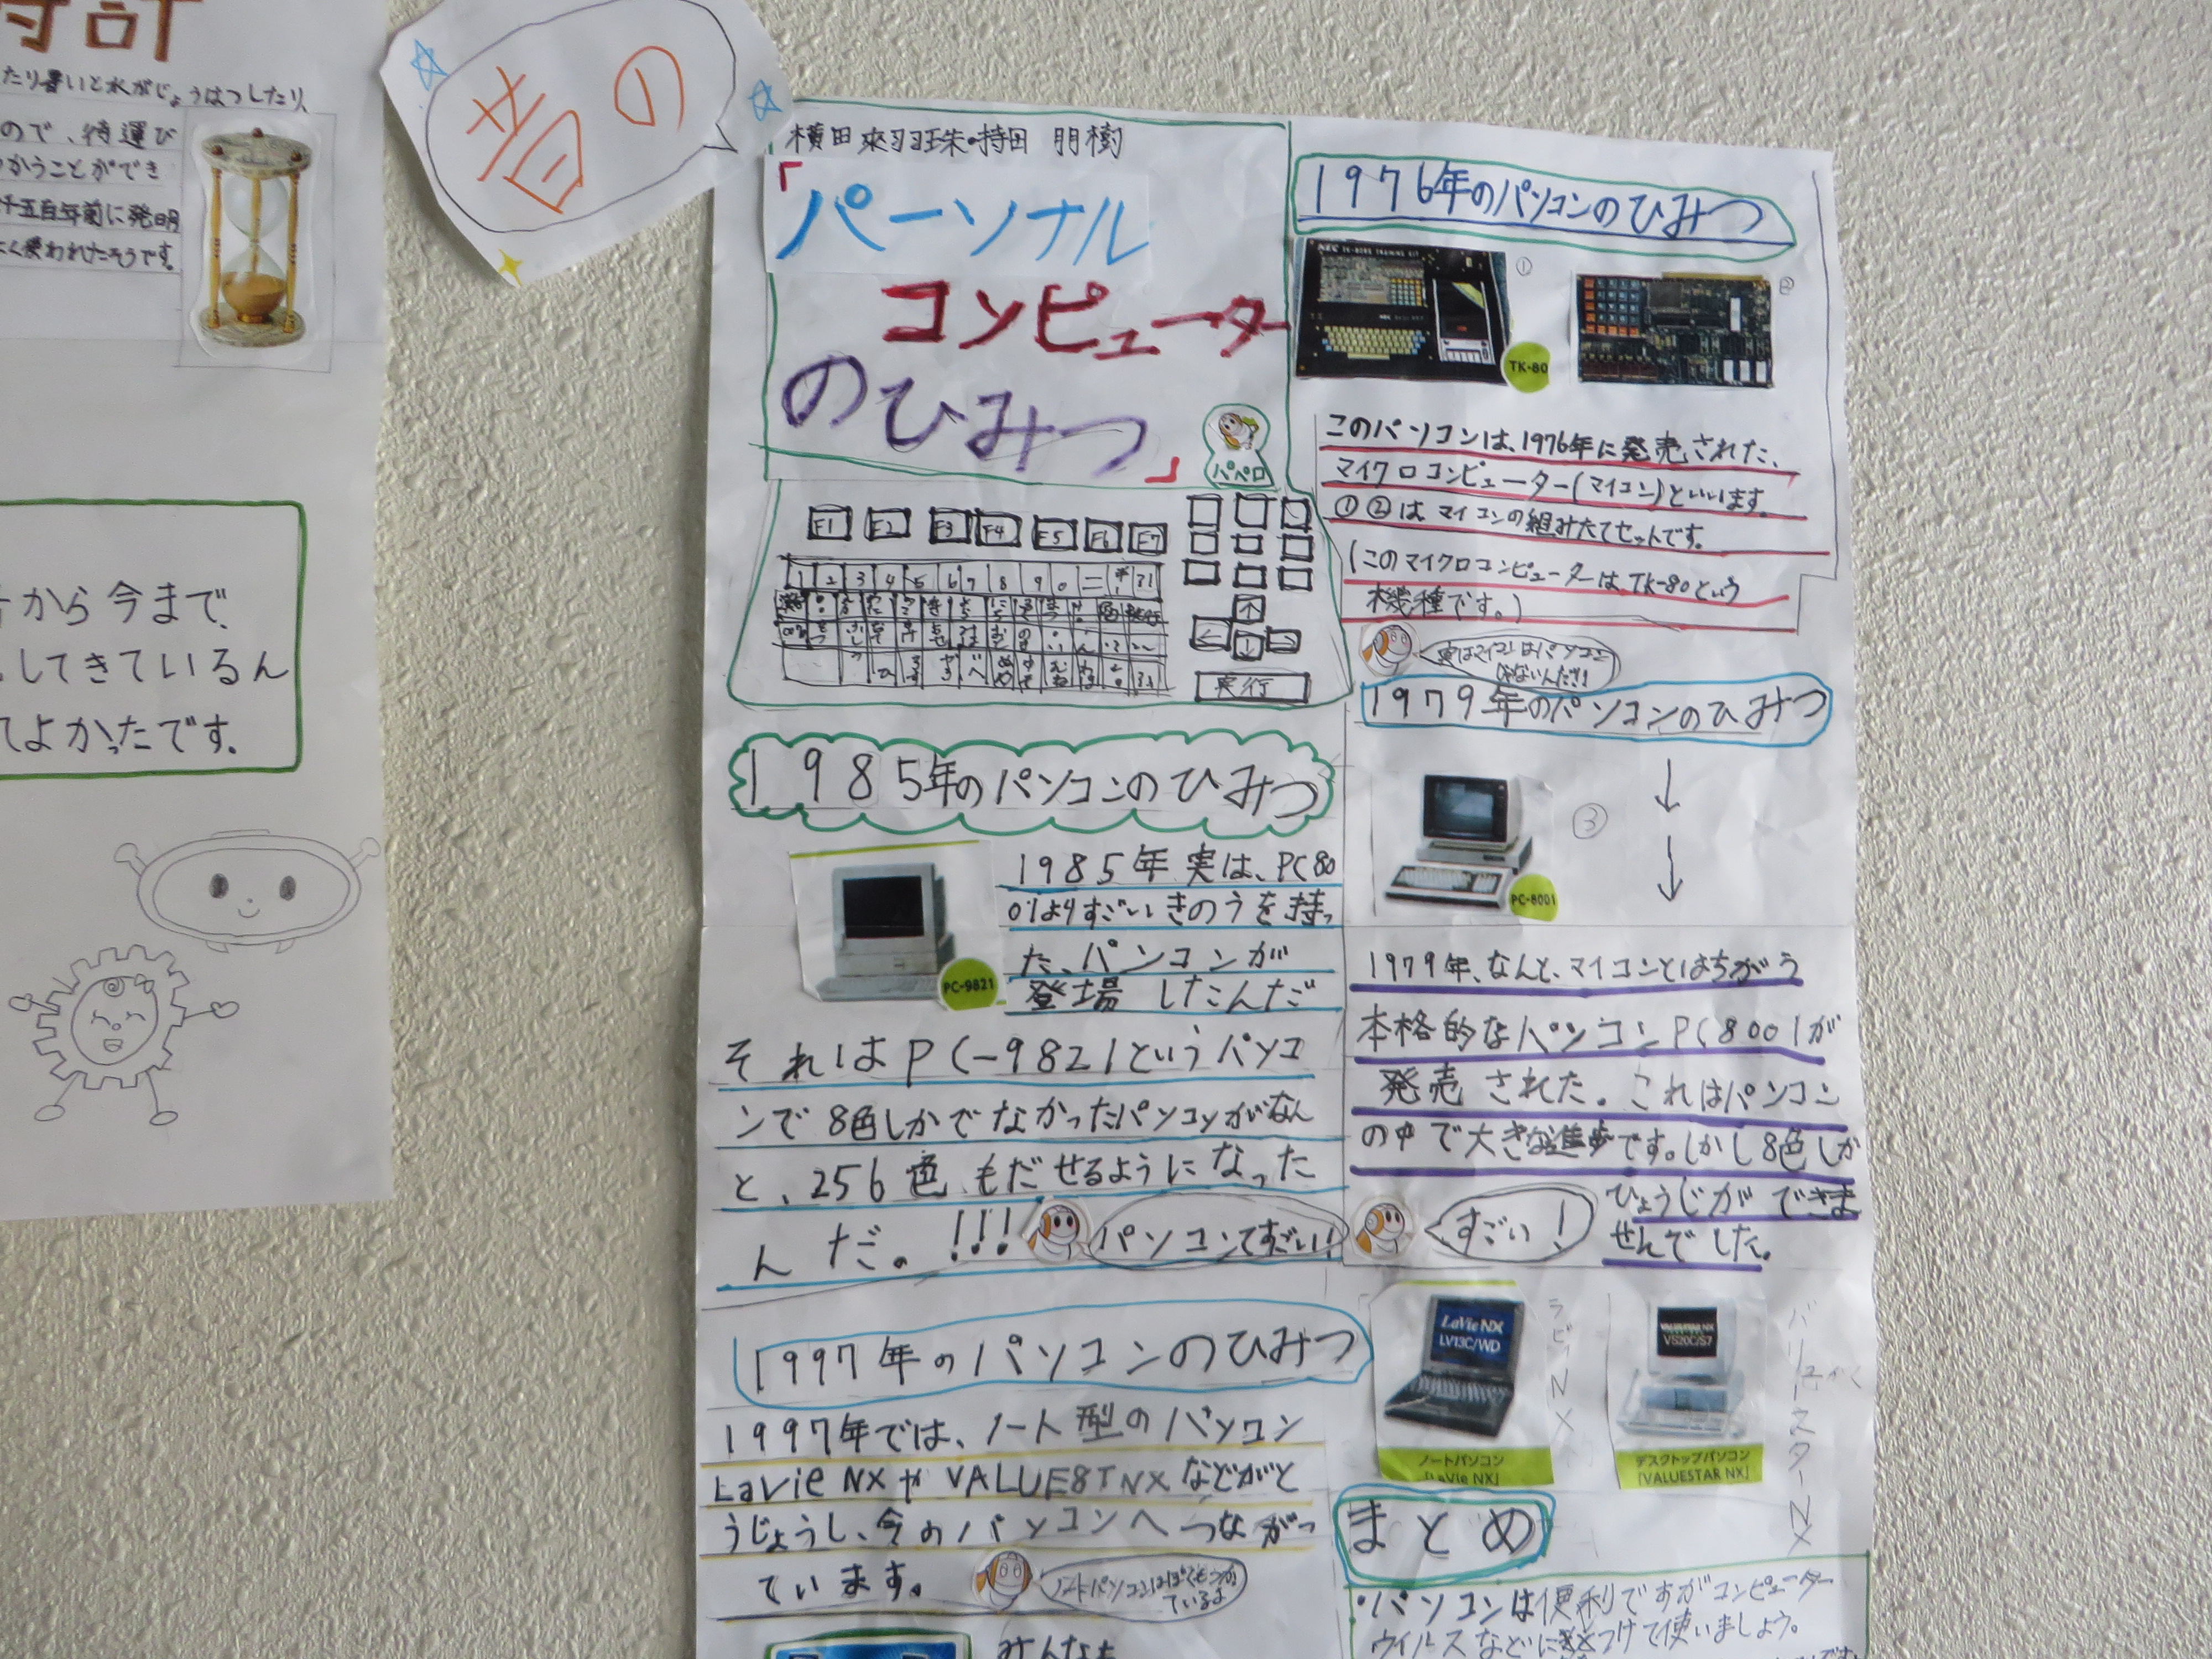 時計
たり暑いと水がじょうはつしたり、
ので、待運び
つかうことができ
千五百年前に発明
よく使われたそうです。
から今まで、
してきているん
てよかったです。
昔の
横田 ・持田 朋樹
「パーソナル
コンピューター
のひみつ」
パペロ
F1 F2 F3 F4 F5 F6 F7
1 2 3 4 5 6 7 8 9 0
↑
← ↓ →
実行
1976年のパソコンのひみつ
NEC TK-80BS TRAINING KIT
①
②
TK-80
このパソコンは、1976年に発売された、
マイクロコンピューター(マイコン)といいます。
①②はマイコンの組みたてセットです。
(このマイクロコンピューターは、TK-80という
機種です。)
実はマイコンはパソコン
じゃないんだ!!
1979年のパソコンのひみつ
↓
③
↓
PC-8001
1979年、なんと、マイコンとはちがう
本格的なパソコンPC8001が
発売された。これはパソコン
の中で大きな進歩です。しかし8色しか
ひょうじができま
せんでした。
すごい!
1985年のパソコンのひみつ
PC-9821
1985年実は、PC80
01よりすごいきのうを持っ
た、パソコンが
登場したんだ
それはPC-9821というパソコ
ンで8色しかでなかったパソコンがなん
と、256色もだせるようになった
んだ。!!!
パソコンてすごい!
1997年のパソコンのひみつ
1997年では、ノート型のパソコン
LaVie NXや VALUE8T NXなどがと
うじょうし、今のパソコンへつながっ
ています。
ているよ
みんなも
LaVie NX
LV13C/WD
ノートパソコン
「LaVie NX」
ラビィNX
VALUESTAR NX
VS20C/S7
デスクトップパソコン
「VALUESTAR NX」
バリュースターNX
まとめ
・パソコンは便利ですがコンピューター
ウイルスなどに気をつけて使いましょう。